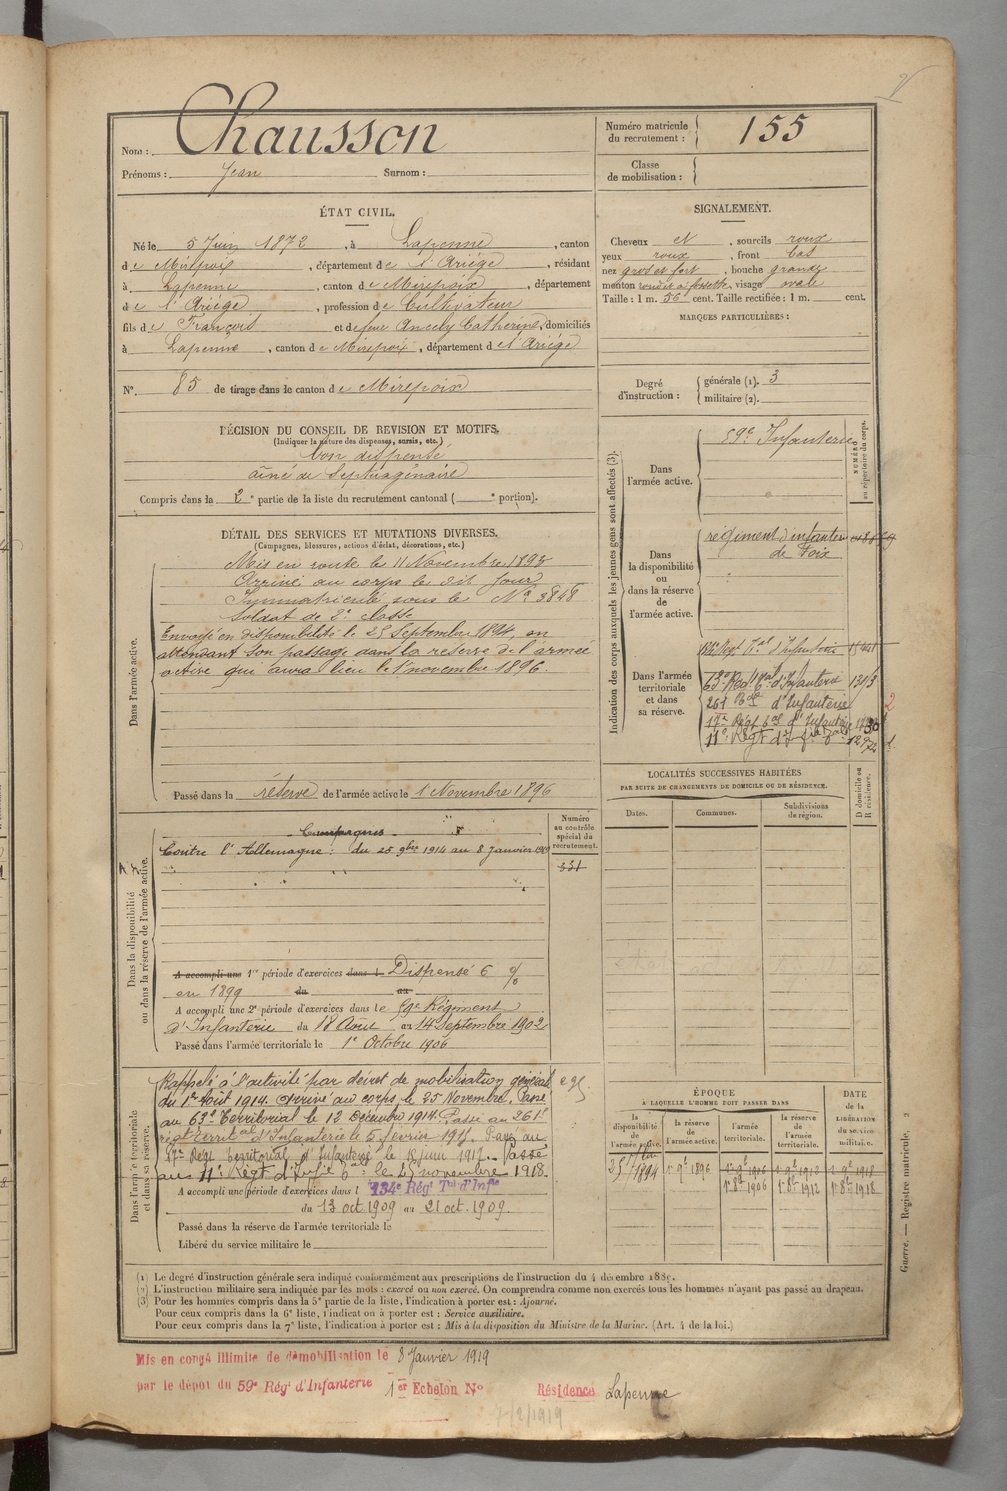 Nom : Chausson
Prénoms : Jean Surnom :
Numéro matricule du recrutement : 155
Classe de mobilisation :
ÉTAT CIVIL.
Né le 5 Juin 1872, à Lapenne, canton
de Mirepoix, département de l'Ariège, résidant
à Lapenne, canton de Mirepoix, département
de l'Ariège, profession de Cultivateur
fils de François et de feue Ancely Catherine, domiciliés
à Lapenne, canton de Mirepoix, département de l'Ariège
N° 85 de tirage dans le canton de Mirepoix
SIGNALEMENT.
Cheveux N, sourcils roux
yeux roux, front bas
nez gros et fort, bouche grande
menton rond et à fossette, visage ovale
Taille : 1 m. 56 cent. Taille rectifiée : 1 m. cent.
MARQUES PARTICULIÈRES :
Degré d'instruction : générale (1). 3
militaire (2).
DÉCISION DU CONSEIL DE REVISION ET MOTIFS.
(Indiquer la nature des dispenses, sursis, etc.)
bon dispensé
aîné de Septuagénaire
Compris dans la 2e partie de la liste du recrutement cantonal ( e portion).
DÉTAIL DES SERVICES ET MUTATIONS DIVERSES.
(Campagnes, blessures, actions d'éclat, décorations, etc.)
Dans l'armée active.
Mis en route le 11 Novembre 1893
Arrivé au corps le dit jour
Immatriculé sous le N° 3848
Soldat de 2e classe
Envoyé en disponibilité le 25 Septembre 1894, en
attendant son passage dans la réserve de l'armée
active qui aura lieu le 1 novembre 1896.
Passé dans la réserve de l'armée active le 1 Novembre 1896
Dans la disponibilité ou dans la réserve de l'armée active.
Numéro au contrôle spécial du recrutement.
331
Campagnes
Contre l'Allemagne : du 25 9bre 1914 au 8 Janvier 1919
A accompli une 1re période d'exercices dans l Dispensé 6 %
en 1899 du au
A accompli une 2e période d'exercices dans le 59e Régiment
d'Infanterie du 18 Août au 14 Septembre 1902
Passé dans l'armée territoriale le 1er Octobre 1906
Dans l'armée territoriale et dans sa réserve.
Rappelé à l'activité par décret de mobilisation générale
du 1er Août 1914. Arrivé au corps, le 25 Novembre. Passé
au 63e Territorial le 12 Décembre 1914. Passé au 261e
régt territal d'Infanterie le 5 février 1917. Passé au
17e Régt territorial d'Infanterie le 18 juin 1917. Passé
au 11e Régt d'Infie Tale le 25 novembre 1918.
A accompli une période d'exercices dans l 134e Régt Tal d'Infie
du 13 oct. 1909 au 21 oct. 1909.
Passé dans la réserve de l'armée territoriale le
Libéré du service militaire le
Indication des corps auxquels les jeunes gens sont affectés (3).
NUMÉRO au répertoire du corps.
Dans l'armée active.
59e Infanterie
Dans la disponibilité ou dans la réserve de l'armée active.
régiment d'infanterie
de Foix
Dans l'armée territoriale et dans sa réserve.
63e Régt Tal d'Infanterie 1313
261 d'Infanterie
17e Régt Tal d'Infanterie
LOCALITÉS SUCCESSIVES HABITÉES
PAR SUITE DE CHANGEMENTS DE DOMICILE OU DE RÉSIDENCE.
Dates. Communes. Subdivisions de région. D domicile ou R résidence.
ÉPOQUE
À LAQUELLE L'HOMME DOIT PASSER DANS
DATE de la LIBÉRATION du service militaire.
la disponibilité de l'armée active. la réserve de l'armée active. l'armée territoriale. la réserve de l'armée territoriale.
25 7bre 1894 1er 9e 1896 1er 9e 1906 1er 9e 1912 1er 9e 1918
1er 8e 1906 1er 8e 1912 1er 8e 1918
(1) Le degré d'instruction générale sera indiqué conformément aux prescriptions de l'instruction du 4 décembre 1889.
(2) L'instruction militaire sera indiquée par les mots : exercé ou non exercé. On comprendra comme non exercés tous les hommes n'ayant pas passé au drapeau.
(3) Pour les hommes compris dans la 5e partie de la liste, l'indication à porter est : Ajourné.
Pour ceux compris dans la 6e liste, l'indication à porter est : Service auxiliaire.
Pour ceux compris dans la 7e liste, l'indication à porter est : Mis à la disposition du Ministre de la Marine. (Art. 4 de la loi.)
Guerre. — Registre matricule. 2
Mis en congé illimité de démobilisation le 8 Janvier 1919
par le dépôt du 59e Régt d'Infanterie 1er Echelon N° Résidence Lapenne
7/2/1919